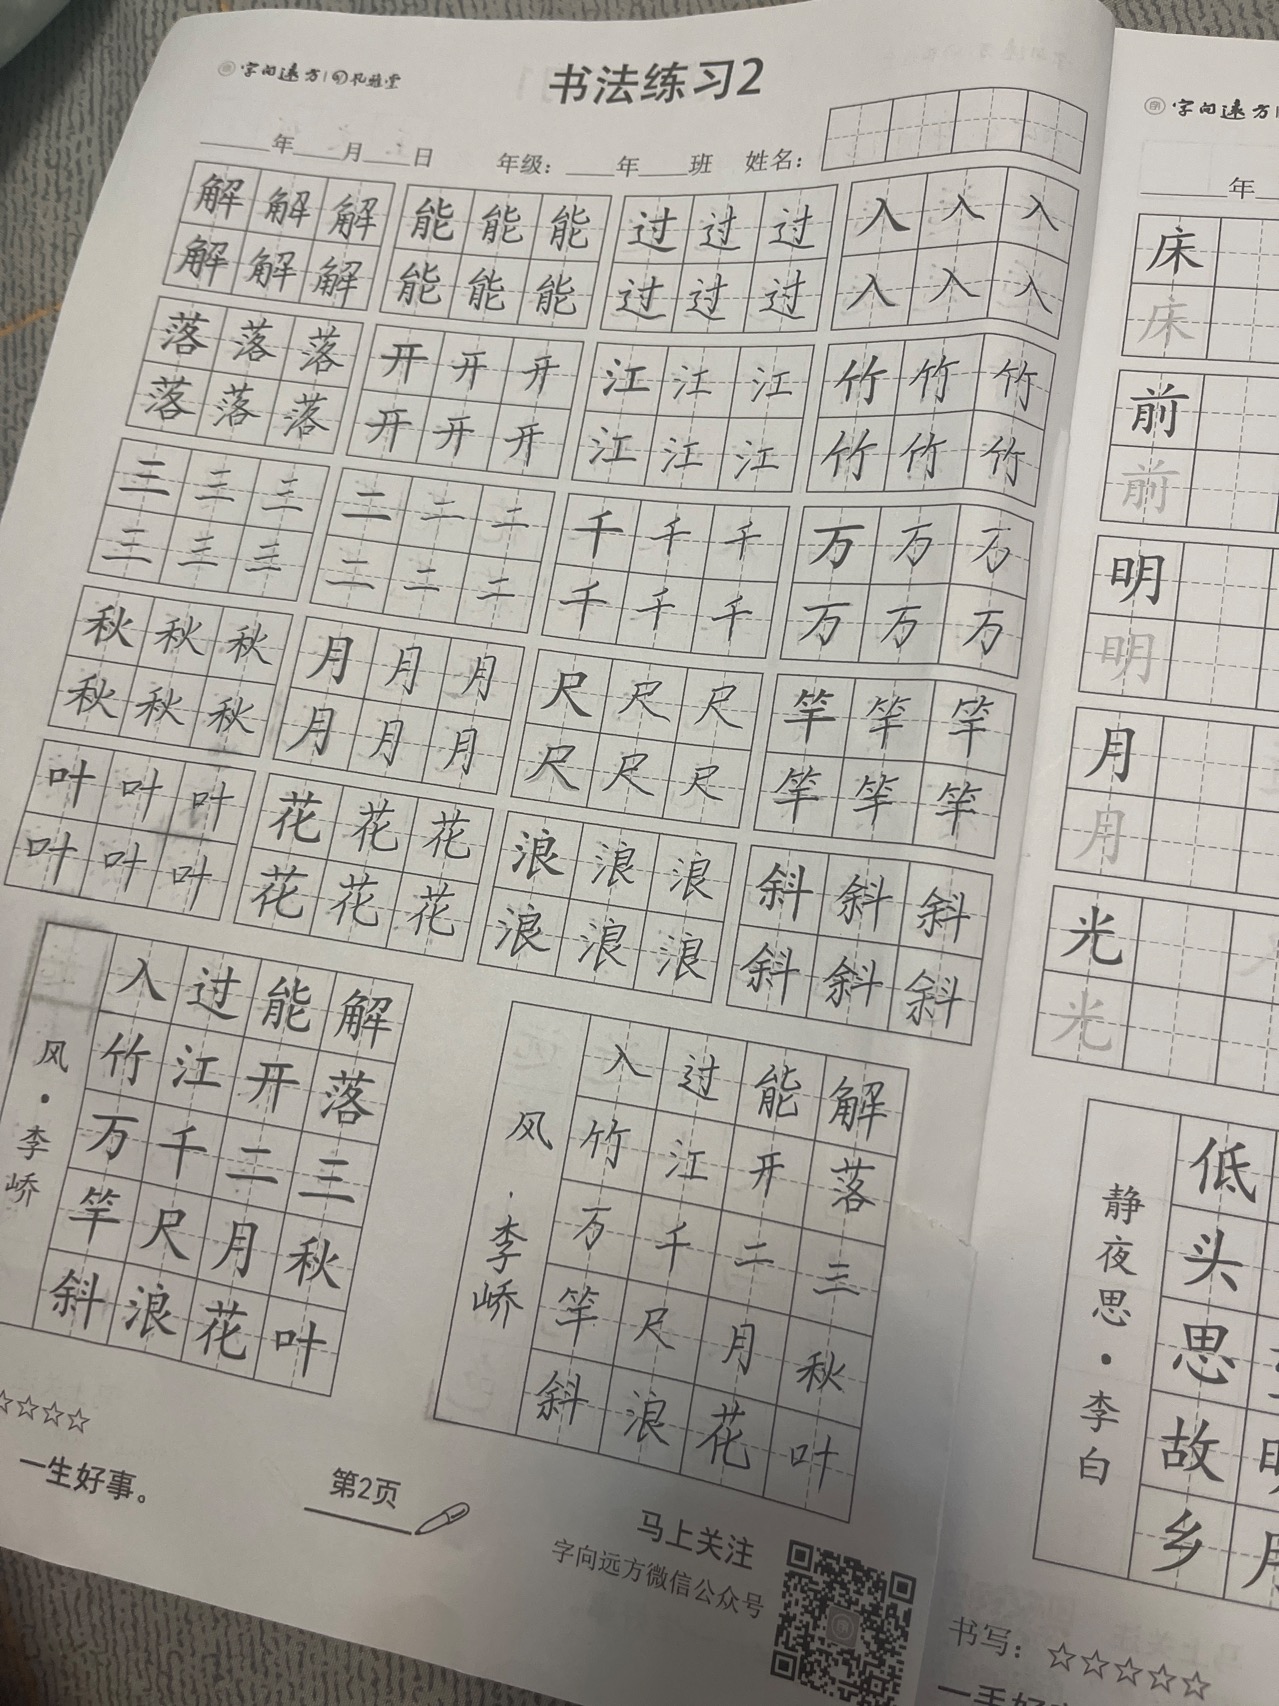 字向远方
书法练习2
年 月 日 年级： 年 班 姓名：
解解解 能能能 过过过 入入入
解解解 能能能 过过过 入入入
落落落 开开开 江江江 竹竹竹
落落落 开开开 江江江 竹竹竹
三三三 二二二 千千千 万万万
三三三 二二二 千千千 万万万
秋秋秋 月月月 尺尺尺 竿竿竿
秋秋秋 月月月 尺尺尺 竿竿竿
叶叶叶 花花花 浪浪浪 斜斜斜
叶叶叶 花花花 浪浪浪 斜斜斜
解落三秋叶
能开二月花
过江千尺浪
入竹万竿斜
风·李峤
解落三秋叶
能开二月花
过江千尺浪
入竹万竿斜
风·李峤
☆☆☆☆
一生好事。
第2页
马上关注
字向远方微信公众号
字向远方
年
床
床
前
前
明
明
月
月
光
光
低头思故乡
静夜思·李白
书写：☆☆☆☆☆